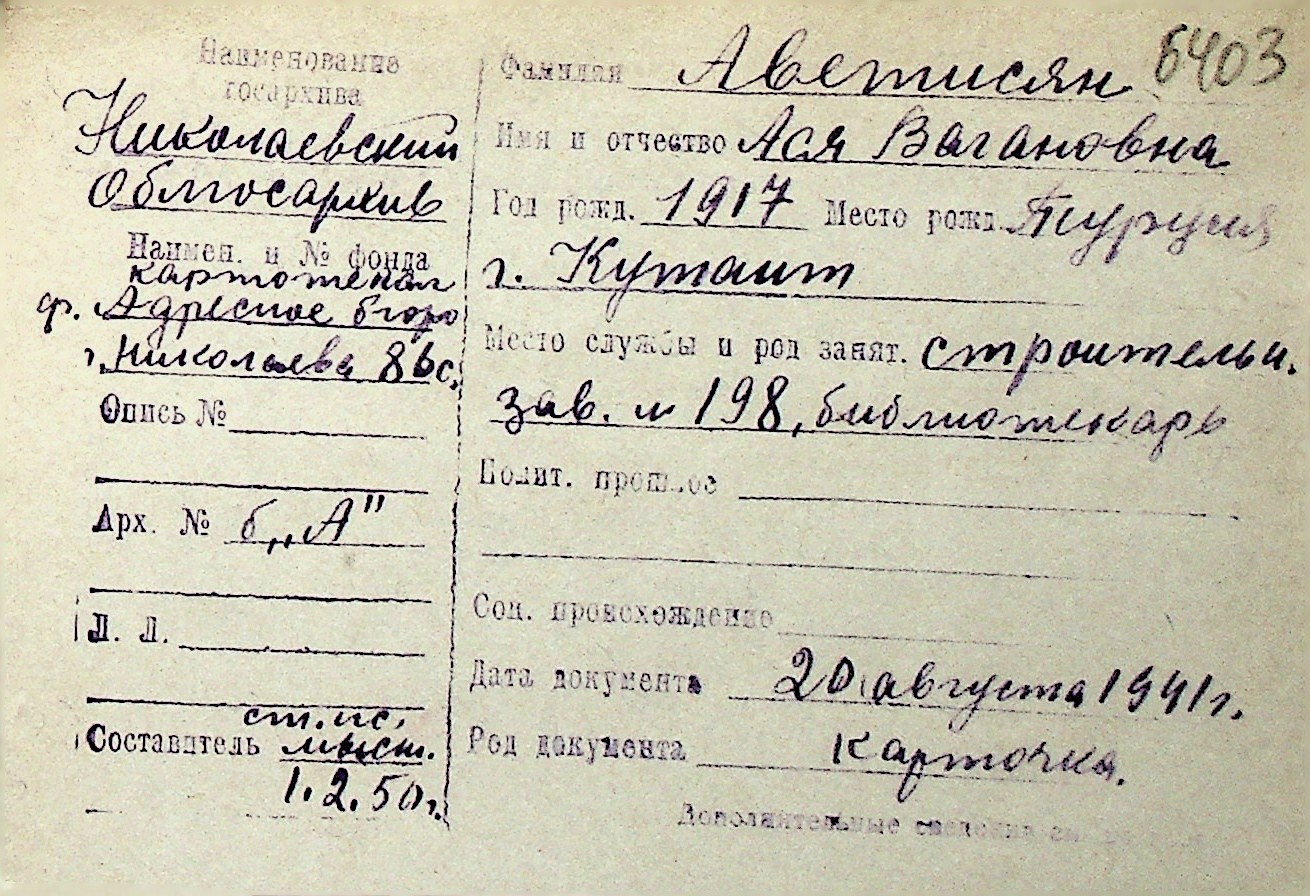 6403
Наименование
госархива
Николаевский
Облгосархив
Наимен. и № фонда
картотека
ф. Адресное бюро
г. Николаева 86с.
Опись №
Арх. № б„А"
Л. Л.
Составитель ст.ис.
1.2.50г.
Фамилия Аветисян
Имя и отчество Ася Вагановна
Год рожд. 1917 Место рожд. Турция
г. Кутаит
Место службы и род занят. строительн.
зав. № 198, библиотекарь
Полит. прошлое
Соц. происхождение
Дата документа 20 августа 1941г.
Род документа карточка.
Дополнительные сведения